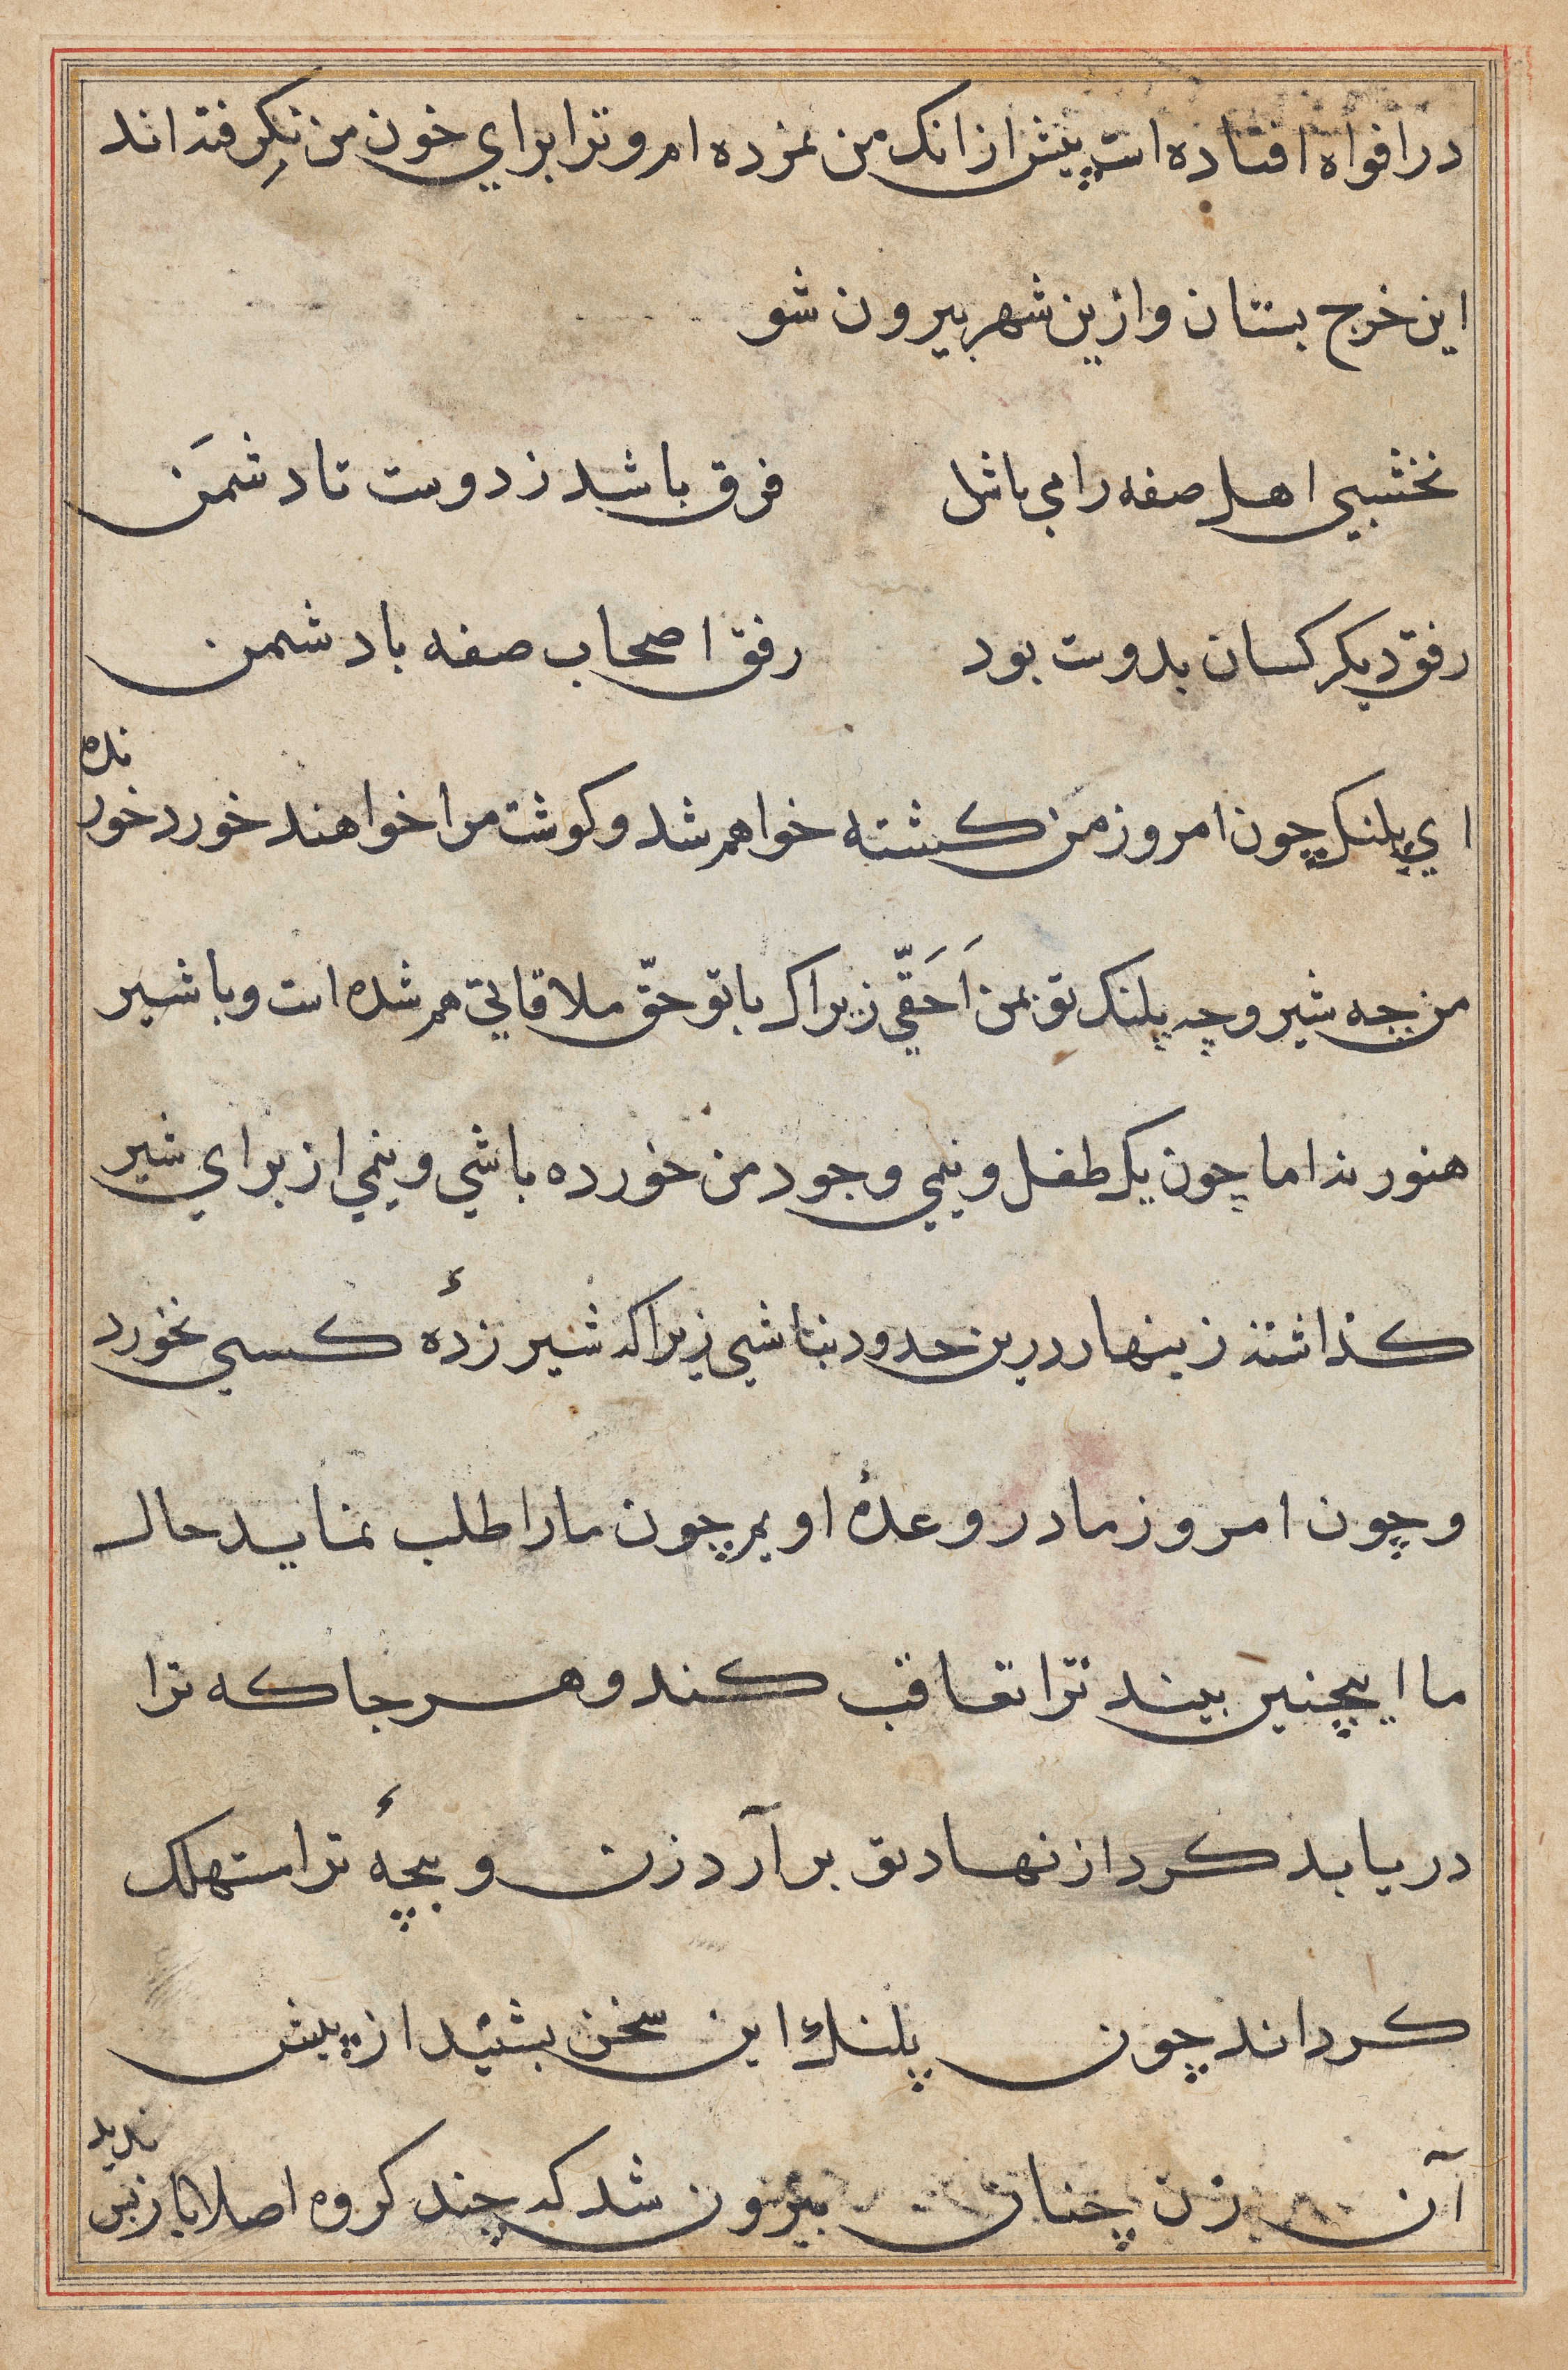 در افواه افتاده است پیش از انک من نمزده ام و ترا برای خون من نکرفته اند
این خرج بستان و ازین شهر بیرون شو
نخشبی اهل صفه را می باشد فرق باشد ز دوست تا دشمَن
رفق دیکر کسان بدوست بود رفق اصحاب صفه با دشمن
ای پلنک چون امروز من کشته خواهم شد و کوشت مرا خواهند خورد خورنده
من چه شیر و چه پلنک تو بمن اَحَقّی زیرا که با تو حقّ ملاقاتی هم شده است و با شیر
هنوز نه اما چون یک طفل و نیمی وجود من خورده باشی و نیمی از برای شیر
کذاشته زینهار درین حدود نباشی زیرا که شیر زدهٔ کسی نخورد
و چون امروز ما در وعدهٔ اویم چون ما را طلب نماید حال
ما اینچنین بیند ترا تعاقب کند و هر جا که ترا
دریابد کرد از نهاد تو برآرد زن و بچهٔ ترا مستهلک
کرداند چون پلنک این سخن بشنید از پیش
آن زن چنان بیرون شد که چند کروه اصلا باز پس ندید